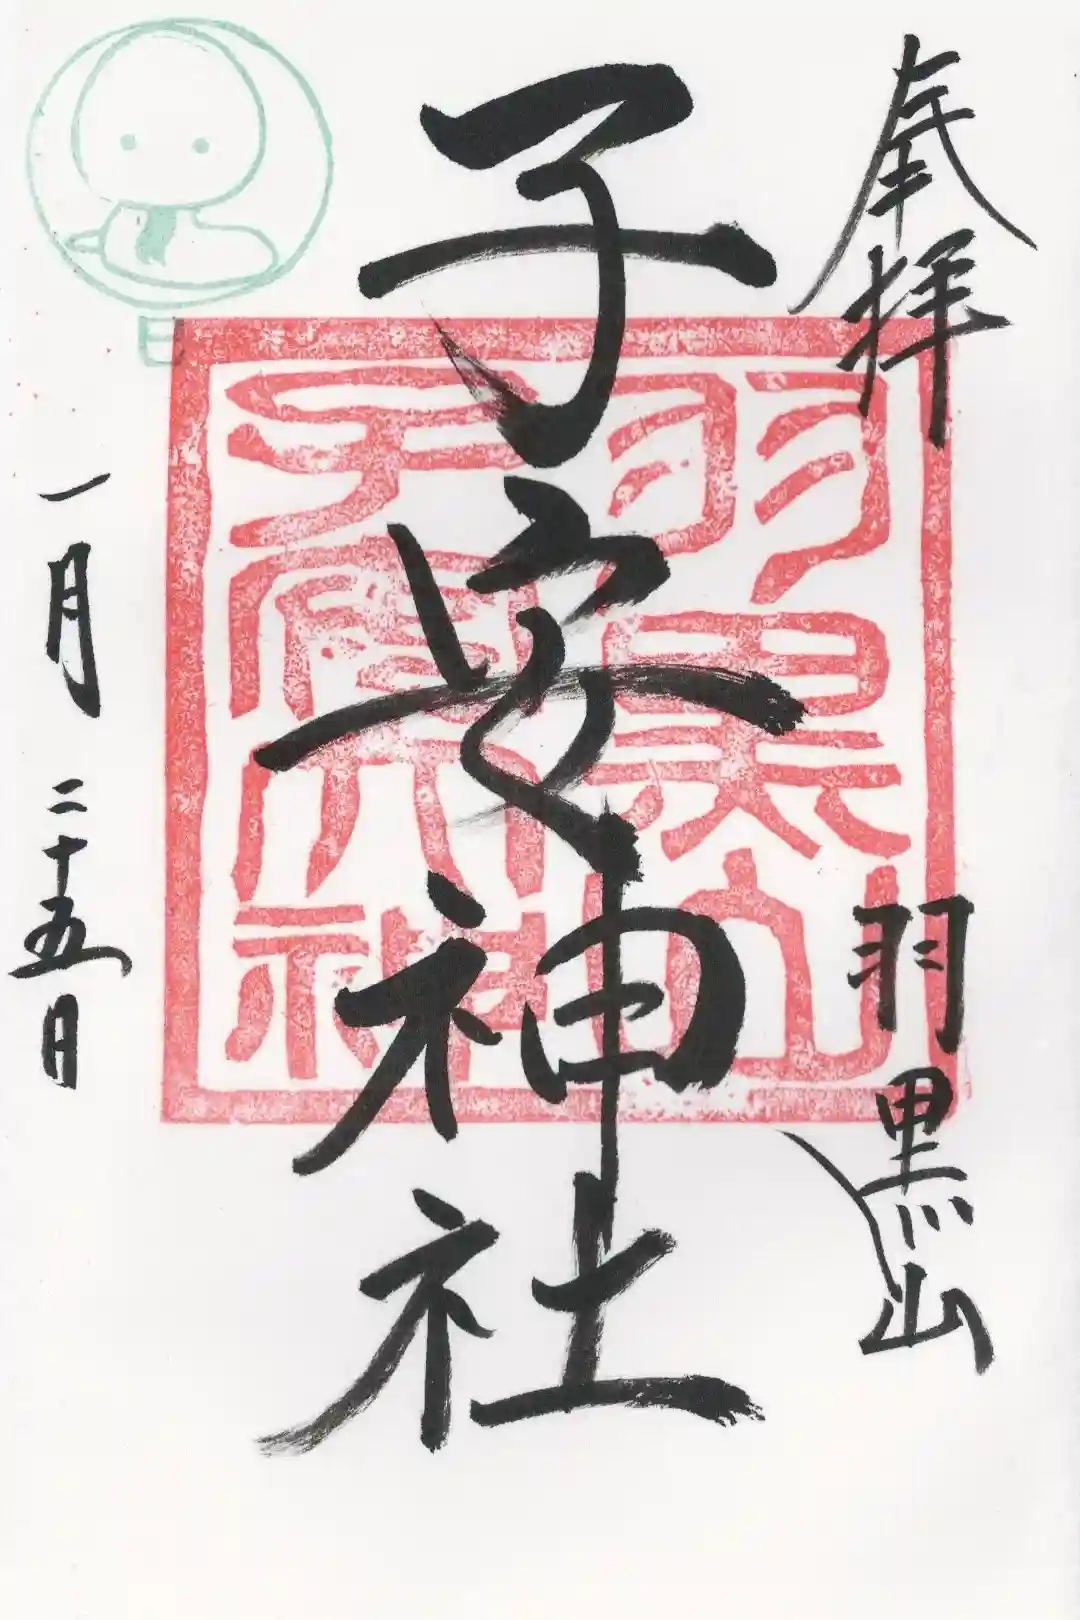 奉拝 羽黒山
子安神社
一月二十五日
羽黒山